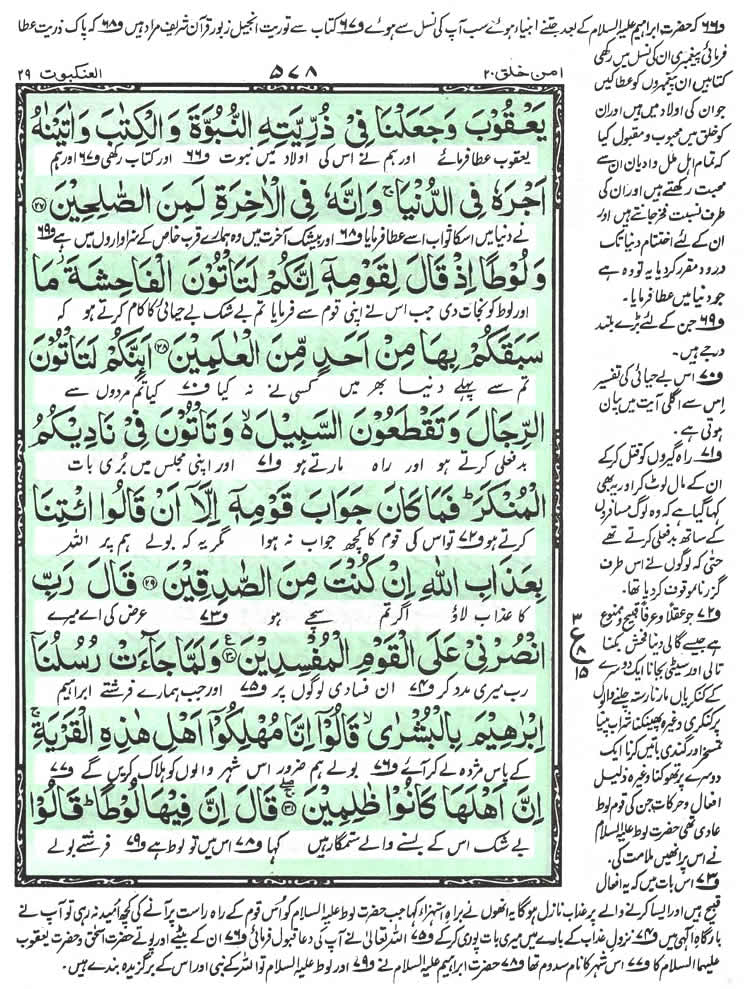 و۶۶ کہ حضرت ابراہیم علیہ السلام کے بعد جتنے انبیاء ہوئے سب آپ کی نسل سے ہوئے و۶۷ کتاب سے توریت انجیل زبور قرآن شریف مراد ہیں و۶۸ کہ پاک ذریت عطا
العنکبوت ۲۹
۵۷۸
امن خلق ۲۰
فرمائی پیغمبری ان کی نسل میں رکھی
کتابیں ان پیغمبروں کو عطا کیں
جو ان کی اولاد میں ہیں اور ان
کو خلق میں محبوب و مقبول کیا
کہ تمام اہل ملل و ادیان ان سے
محبت رکھتے ہیں اور ان کی
طرف نسبت فخر جانتے ہیں اور
ان کے لئے اختتام دنیا تک
درود مقرر کردیا یہ تو وہ ہے
جو دنیا میں عطا فرمایا۔
و۶۹ جن کے لئے بڑے بلند
درجے ہیں۔
و۷۰ اس بے حیائی کی تفسیر
اس سے اگلی آیت میں بیان
ہوتی ہے۔
و۷۱ راہ گیروں کو قتل کرکے
ان کے مال لوٹ کر اور یہ بھی
کہا گیا ہے کہ وہ لوگ مسافروں
کے ساتھ بدفعلی کرتے تھے
حتی کہ لوگوں نے اس طرف
گزرنا موقوف کردیا تھا۔
و۷۲ جو عقلا و عرفا قبیح و ممنوع
ہے جیسے گالی دینا فحش بکنا
تالی اور سیٹی بجانا ایک دوسرے
کے کنکریاں مارنا رستہ چلنے والوں
پر کنکری وغیرہ پھینکنا شراب پینا
تمسخر اور گندی باتیں کرنا ایک
دوسرے پر تھوکنا وغیرہ ذلیل
افعال و حرکات جن کی قوم لوط
عادی تھی حضرت لوط علیہ السلام
نے اس پر انھیں ملامت کی۔
و۷۳ اس بات میں کہ یہ افعال
یَعْقُوْبَ وَجَعَلْنَا فِیْ ذُرِّیَّتِهِ النُّبُوَّةَ وَالْكِتٰبَ وَاٰتَیْنٰهُ
یعقوب عطا فرمائے اور ہم نے اس کی اولاد میں نبوت و۶۶ اور کتاب رکھی و۶۷ اور ہم
اَجْرَهٗ فِی الدُّنْیَا ۚ وَاِنَّهٗ فِی الْاٰخِرَةِ لَمِنَ الصّٰلِحِیْنَ ۲۷
نے دنیا میں اس کا ثواب اسے عطا فرمایا و۶۸ اور بیشک آخرت میں وہ ہمارے قرب خاص کے سزاواروں میں ہے و۶۹
وَلُوْطًا اِذْ قَالَ لِقَوْمِهٖۤ اِنَّكُمْ لَتَاْتُوْنَ الْفَاحِشَةَ ؗ مَا
اور لوط کو نجات دی جب اس نے اپنی قوم سے فرمایا تم بے شک بے حیائی کا کام کرتے ہو کہ
سَبَقَكُمْ بِهَا مِنْ اَحَدٍ مِّنَ الْعٰلَمِیْنَ ۲۸ اَىِٕنَّكُمْ لَتَاْتُوْنَ
تم سے پہلے دنیا بھر میں کسی نے نہ کیا و۷۰ کیا تم مردوں سے
الرِّجَالَ وَتَقْطَعُوْنَ السَّبِیْلَ ۙ۬ وَتَاْتُوْنَ فِیْ نَادِیْكُمُ
بدفعلی کرتے ہو اور راہ مارتے ہو و۷۱ اور اپنی مجلس میں بُری بات
الْمُنْكَرَ ؕ فَمَا كَانَ جَوَابَ قَوْمِهٖۤ اِلَّاۤ اَنْ قَالُوا ائْتِنَا
کرتے ہو و۷۲ تو اس کی قوم کا کچھ جواب نہ ہوا مگر یہ کہ بولے ہم پر اللہ
بِعَذَابِ اللّٰهِ اِنْ كُنْتَ مِنَ الصّٰدِقِیْنَ ۲۹ قَالَ رَبِّ
کا عذاب لاؤ اگر تم سچے ہو و۷۳ عرض کی اے میرے
انْصُرْنِیْ عَلَى الْقَوْمِ الْمُفْسِدِیْنَ ۳۰ وَلَمَّا جَآءَتْ رُسُلُنَاۤ
رب میری مدد کر و۷۴ ان فسادی لوگوں پر و۷۵ اور جب ہمارے فرشتے ابراہیم
اِبْرٰهِیْمَ بِالْبُشْرٰى ۙ قَالُوْۤا اِنَّا مُهْلِكُوْۤا اَهْلِ هٰذِهِ الْقَرْیَةِ ۚ
کے پاس مژدہ لے کر آئے و۷۶ بولے ہم ضرور اس شہر والوں کو ہلاک کریں گے و۷۷
اِنَّ اَهْلَهَا كَانُوْا ظٰلِمِیْنَ ۳۱ قَالَ اِنَّ فِیْهَا لُوْطًا ؕ قَالُوْا
بے شک اس کے بسنے والے ستمگار ہیں کہا و۷۸ اس میں تو لوط ہے و۷۹ فرشتے بولے
۳
ع
۸
۱۵
قبیح ہیں اور ایسا کرنے والے پر عذاب نازل ہوگا یہ انھوں نے براہ استہزاء کہا جب حضرت لوط علیہ السلام کو اس قوم کے راہ راست پر آنے کی کچھ امید نہ رہی تو آپ نے
بارگاہ الٰہی میں و۷۴ نزول عذاب کے بارے میں میری بات پوری کرکے و۷۵ اللہ تعالیٰ نے آپ کی دعا قبول فرمائی و۷۶ ان کے بیٹے اور پوتے حضرت اسحٰق و حضرت یعقوب
علیہما السلام کا و۷۷ اس شہر کا نام سدوم تھا و۷۸ حضرت ابراہیم علیہ السلام نے و۷۹ اور لوط علیہ السلام تو اللہ کے نبی اور اس کے برگزیدہ بندے ہیں۔